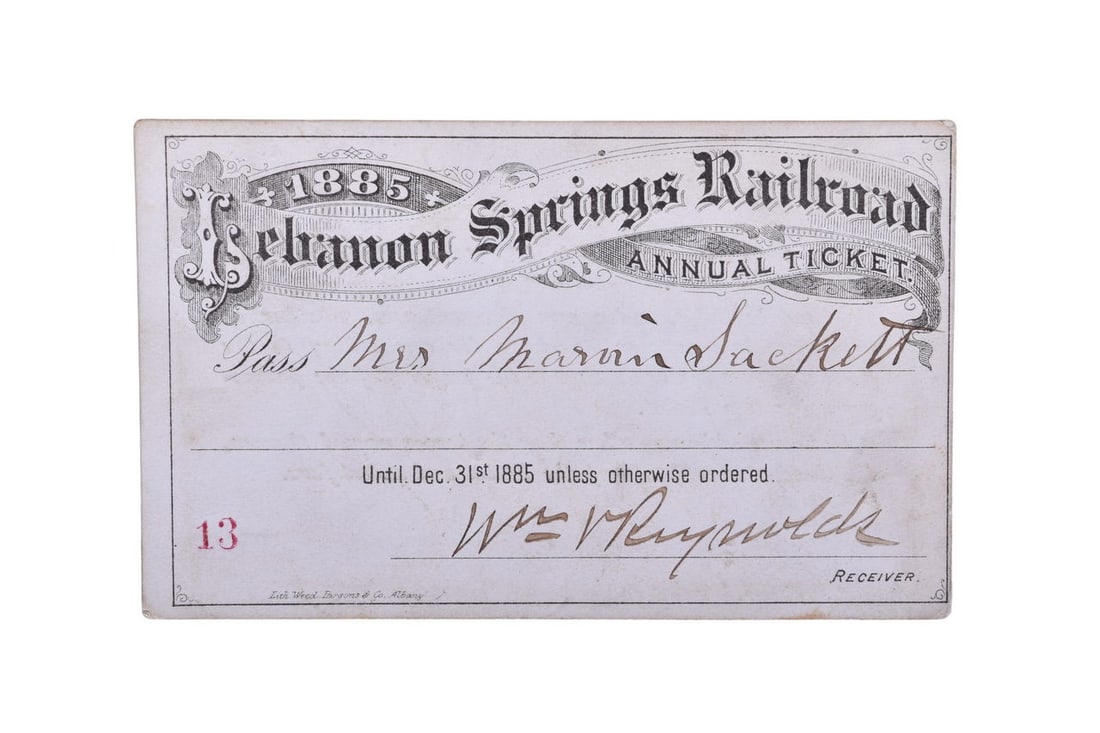 1885
Lebanon Springs Railroad
ANNUAL TICKET.
Pass Mrs Marvin Sackett
Until Dec. 31st 1885 unless otherwise ordered.
13
Wm V Reynolds
RECEIVER.
Lith. Weed, Parsons & Co. Albany